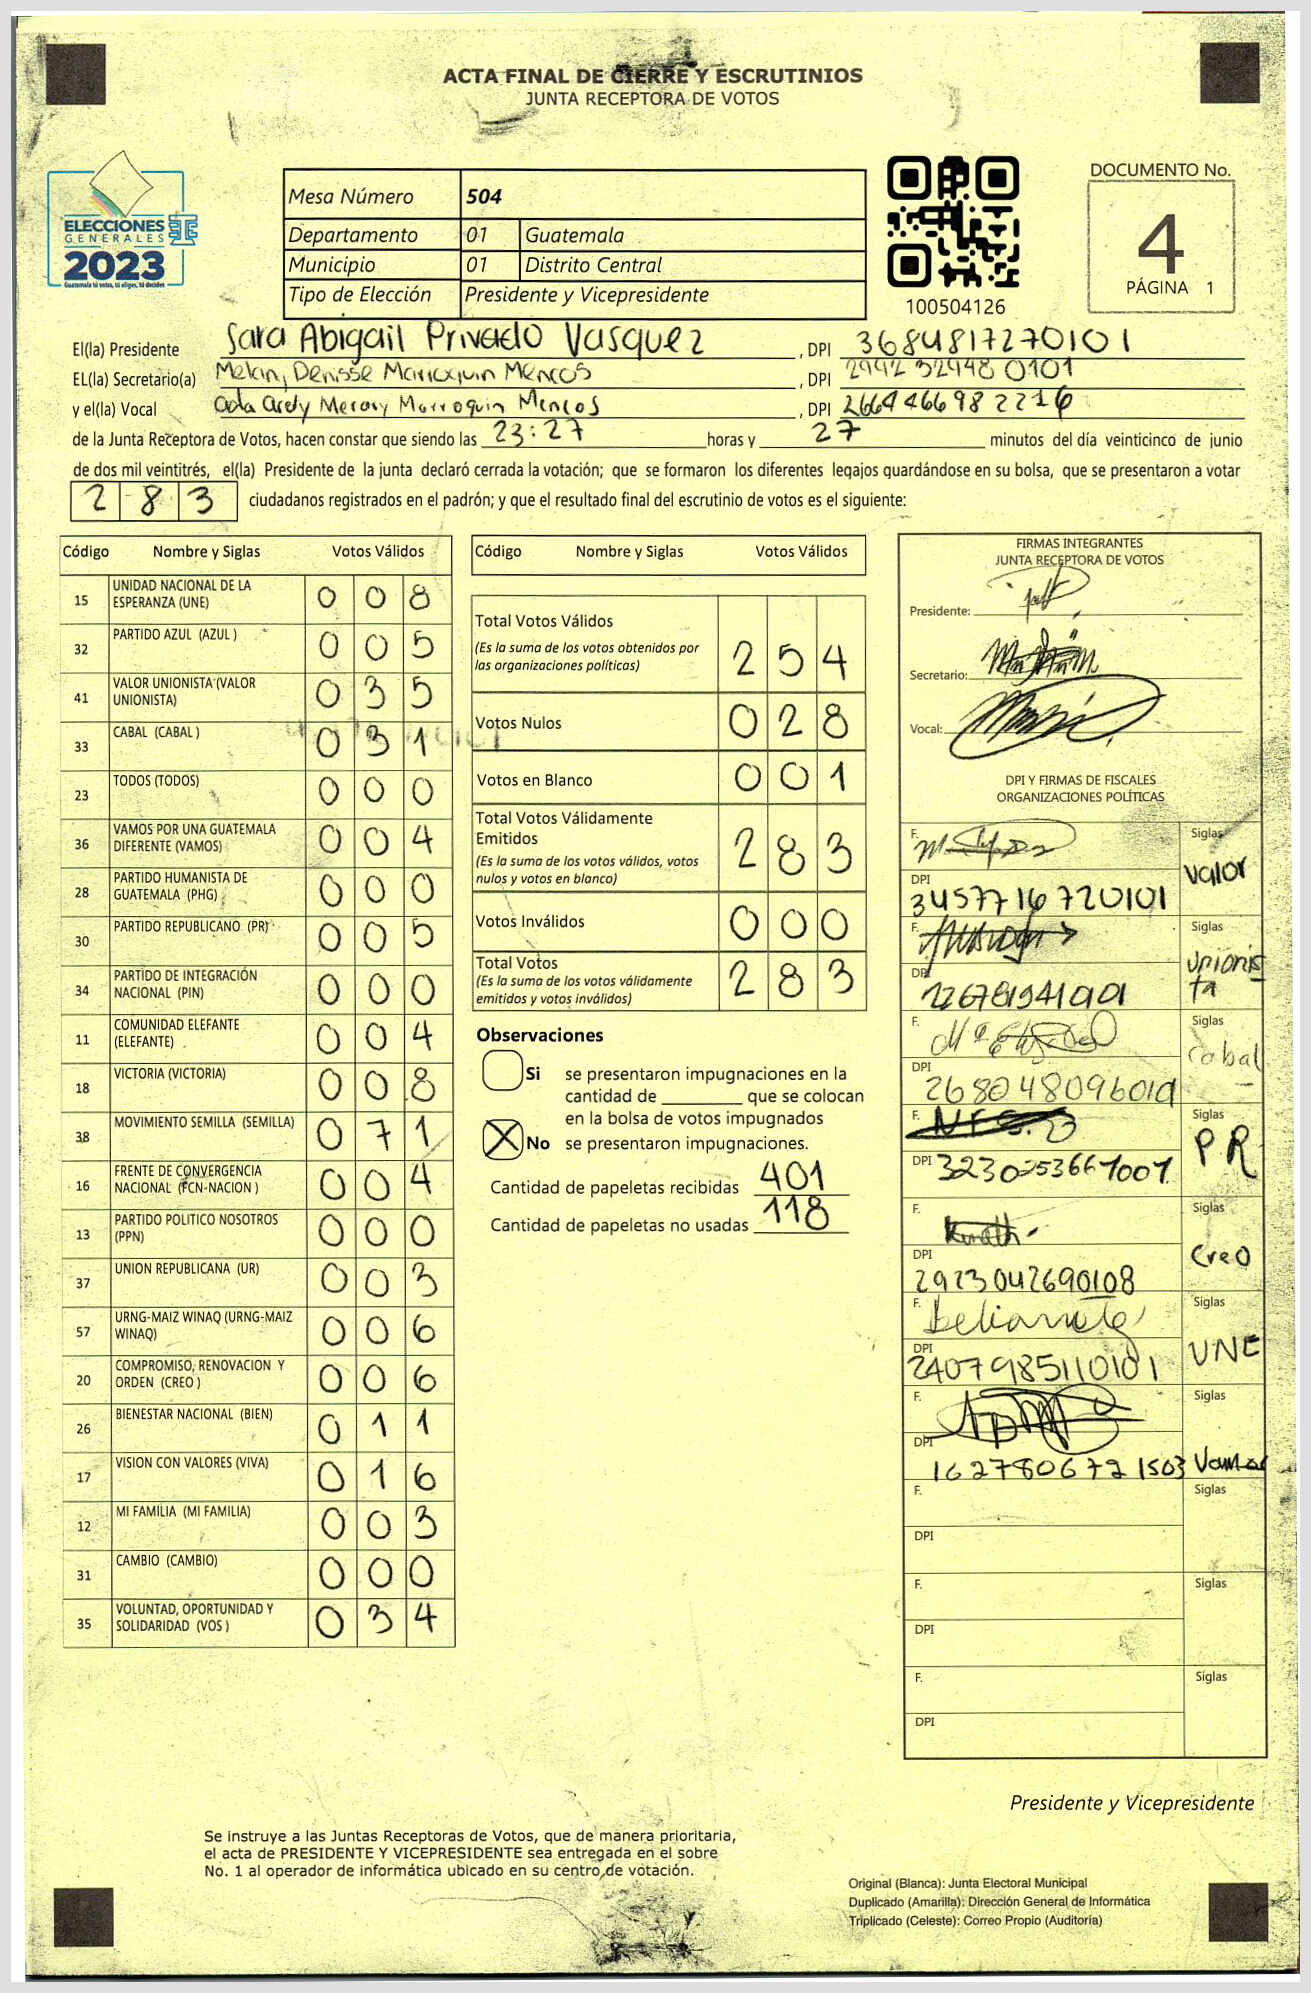 ACTA FINAL DE CIERRE Y ESCRUTINIOS
JUNTA RECEPTORA DE VOTOS
ELECCIONES
GENERALES
2023
Guatemala tú votas, tú eliges, tú decides
Mesa Número 504
Departamento 01 Guatemala
Municipio 01 Distrito Central
Tipo de Elección Presidente y Vicepresidente
100504126
DOCUMENTO No.
4
PÁGINA 1
El(la) Presidente Sara Abigail Privado Vasquez, DPI 3684817270101
EL(la) Secretario(a) Denisse Marroquin Mencos, DPI 2942 32948 0101
y el(la) Vocal Marroquin Mencos, DPI 2664466982216
de la Junta Receptora de Votos, hacen constar que siendo las 23:27 horas y 27 minutos del día veinticinco de junio
de dos mil veintitrés, el(la) Presidente de la junta declaró cerrada la votación; que se formaron los diferentes legajos guardándose en su bolsa, que se presentaron a votar
283 ciudadanos registrados en el padrón; y que el resultado final del escrutinio de votos es el siguiente:
Código Nombre y Siglas Votos Válidos
15 UNIDAD NACIONAL DE LA ESPERANZA (UNE) 0 0 8
32 PARTIDO AZUL (AZUL ) 0 0 5
41 VALOR UNIONISTA (VALOR UNIONISTA) 0 3 5
33 CABAL (CABAL ) 0 3 1
23 TODOS (TODOS) 0 0 0
36 VAMOS POR UNA GUATEMALA DIFERENTE (VAMOS) 0 0 4
28 PARTIDO HUMANISTA DE GUATEMALA (PHG) 0 0 0
30 PARTIDO REPUBLICANO (PR) 0 0 5
34 PARTIDO DE INTEGRACIÓN NACIONAL (PIN) 0 0 0
11 COMUNIDAD ELEFANTE (ELEFANTE) 0 0 4
18 VICTORIA (VICTORIA) 0 0 8
38 MOVIMIENTO SEMILLA (SEMILLA) 0 7 1
16 FRENTE DE CONVERGENCIA NACIONAL (FCN-NACION ) 0 0 4
13 PARTIDO POLITICO NOSOTROS (PPN) 0 0 0
37 UNION REPUBLICANA (UR) 0 0 3
57 URNG-MAIZ WINAQ (URNG-MAIZ WINAQ) 0 0 6
20 COMPROMISO, RENOVACION Y ORDEN (CREO ) 0 0 6
26 BIENESTAR NACIONAL (BIEN) 0 1 1
17 VISION CON VALORES (VIVA) 0 1 6
12 MI FAMILIA (MI FAMILIA) 0 0 3
31 CAMBIO (CAMBIO) 0 0 0
35 VOLUNTAD, OPORTUNIDAD Y SOLIDARIDAD (VOS ) 0 3 4
Código Nombre y Siglas Votos Válidos
Total Votos Válidos
(Es la suma de los votos obtenidos por
las organizaciones políticas) 2 5 4
Votos Nulos 0 2 8
Votos en Blanco 0 0 1
Total Votos Válidamente
Emitidos
(Es la suma de los votos válidos, votos
nulos y votos en blanco) 2 8 3
Votos Inválidos 0 0 0
Total Votos
(Es la suma de los votos válidamente
emitidos y votos inválidos) 2 8 3
Observaciones
Si se presentaron impugnaciones en la
cantidad de ________ que se colocan
en la bolsa de votos impugnados
X No se presentaron impugnaciones.
Cantidad de papeletas recibidas 401
Cantidad de papeletas no usadas 118
FIRMAS INTEGRANTES
JUNTA RECEPTORA DE VOTOS
Presidente:
Secretario:
Vocal:
DPI Y FIRMAS DE FISCALES
ORGANIZACIONES POLÍTICAS
F. Siglas Valor
DPI 3457716720101
F. Siglas Unionista
DPI
F. Siglas Cabal
DPI
F. Siglas PR
DPI 3230253661001
F. Siglas Creo
DPI 2923042690108
F. Siglas UNE
DPI 2407985110101
F. Siglas Vamos
DPI 1627806721503
F. Siglas
DPI
F. Siglas
DPI
F. Siglas
DPI
Presidente y Vicepresidente
Se instruye a las Juntas Receptoras de Votos, que de manera prioritaria,
el acta de PRESIDENTE Y VICEPRESIDENTE sea entregada en el sobre
No. 1 al operador de informática ubicado en su centro de votación.
Original (Blanca): Junta Electoral Municipal
Duplicado (Amarilla): Dirección General de Informática
Triplicado (Celeste): Correo Propio (Auditoría)